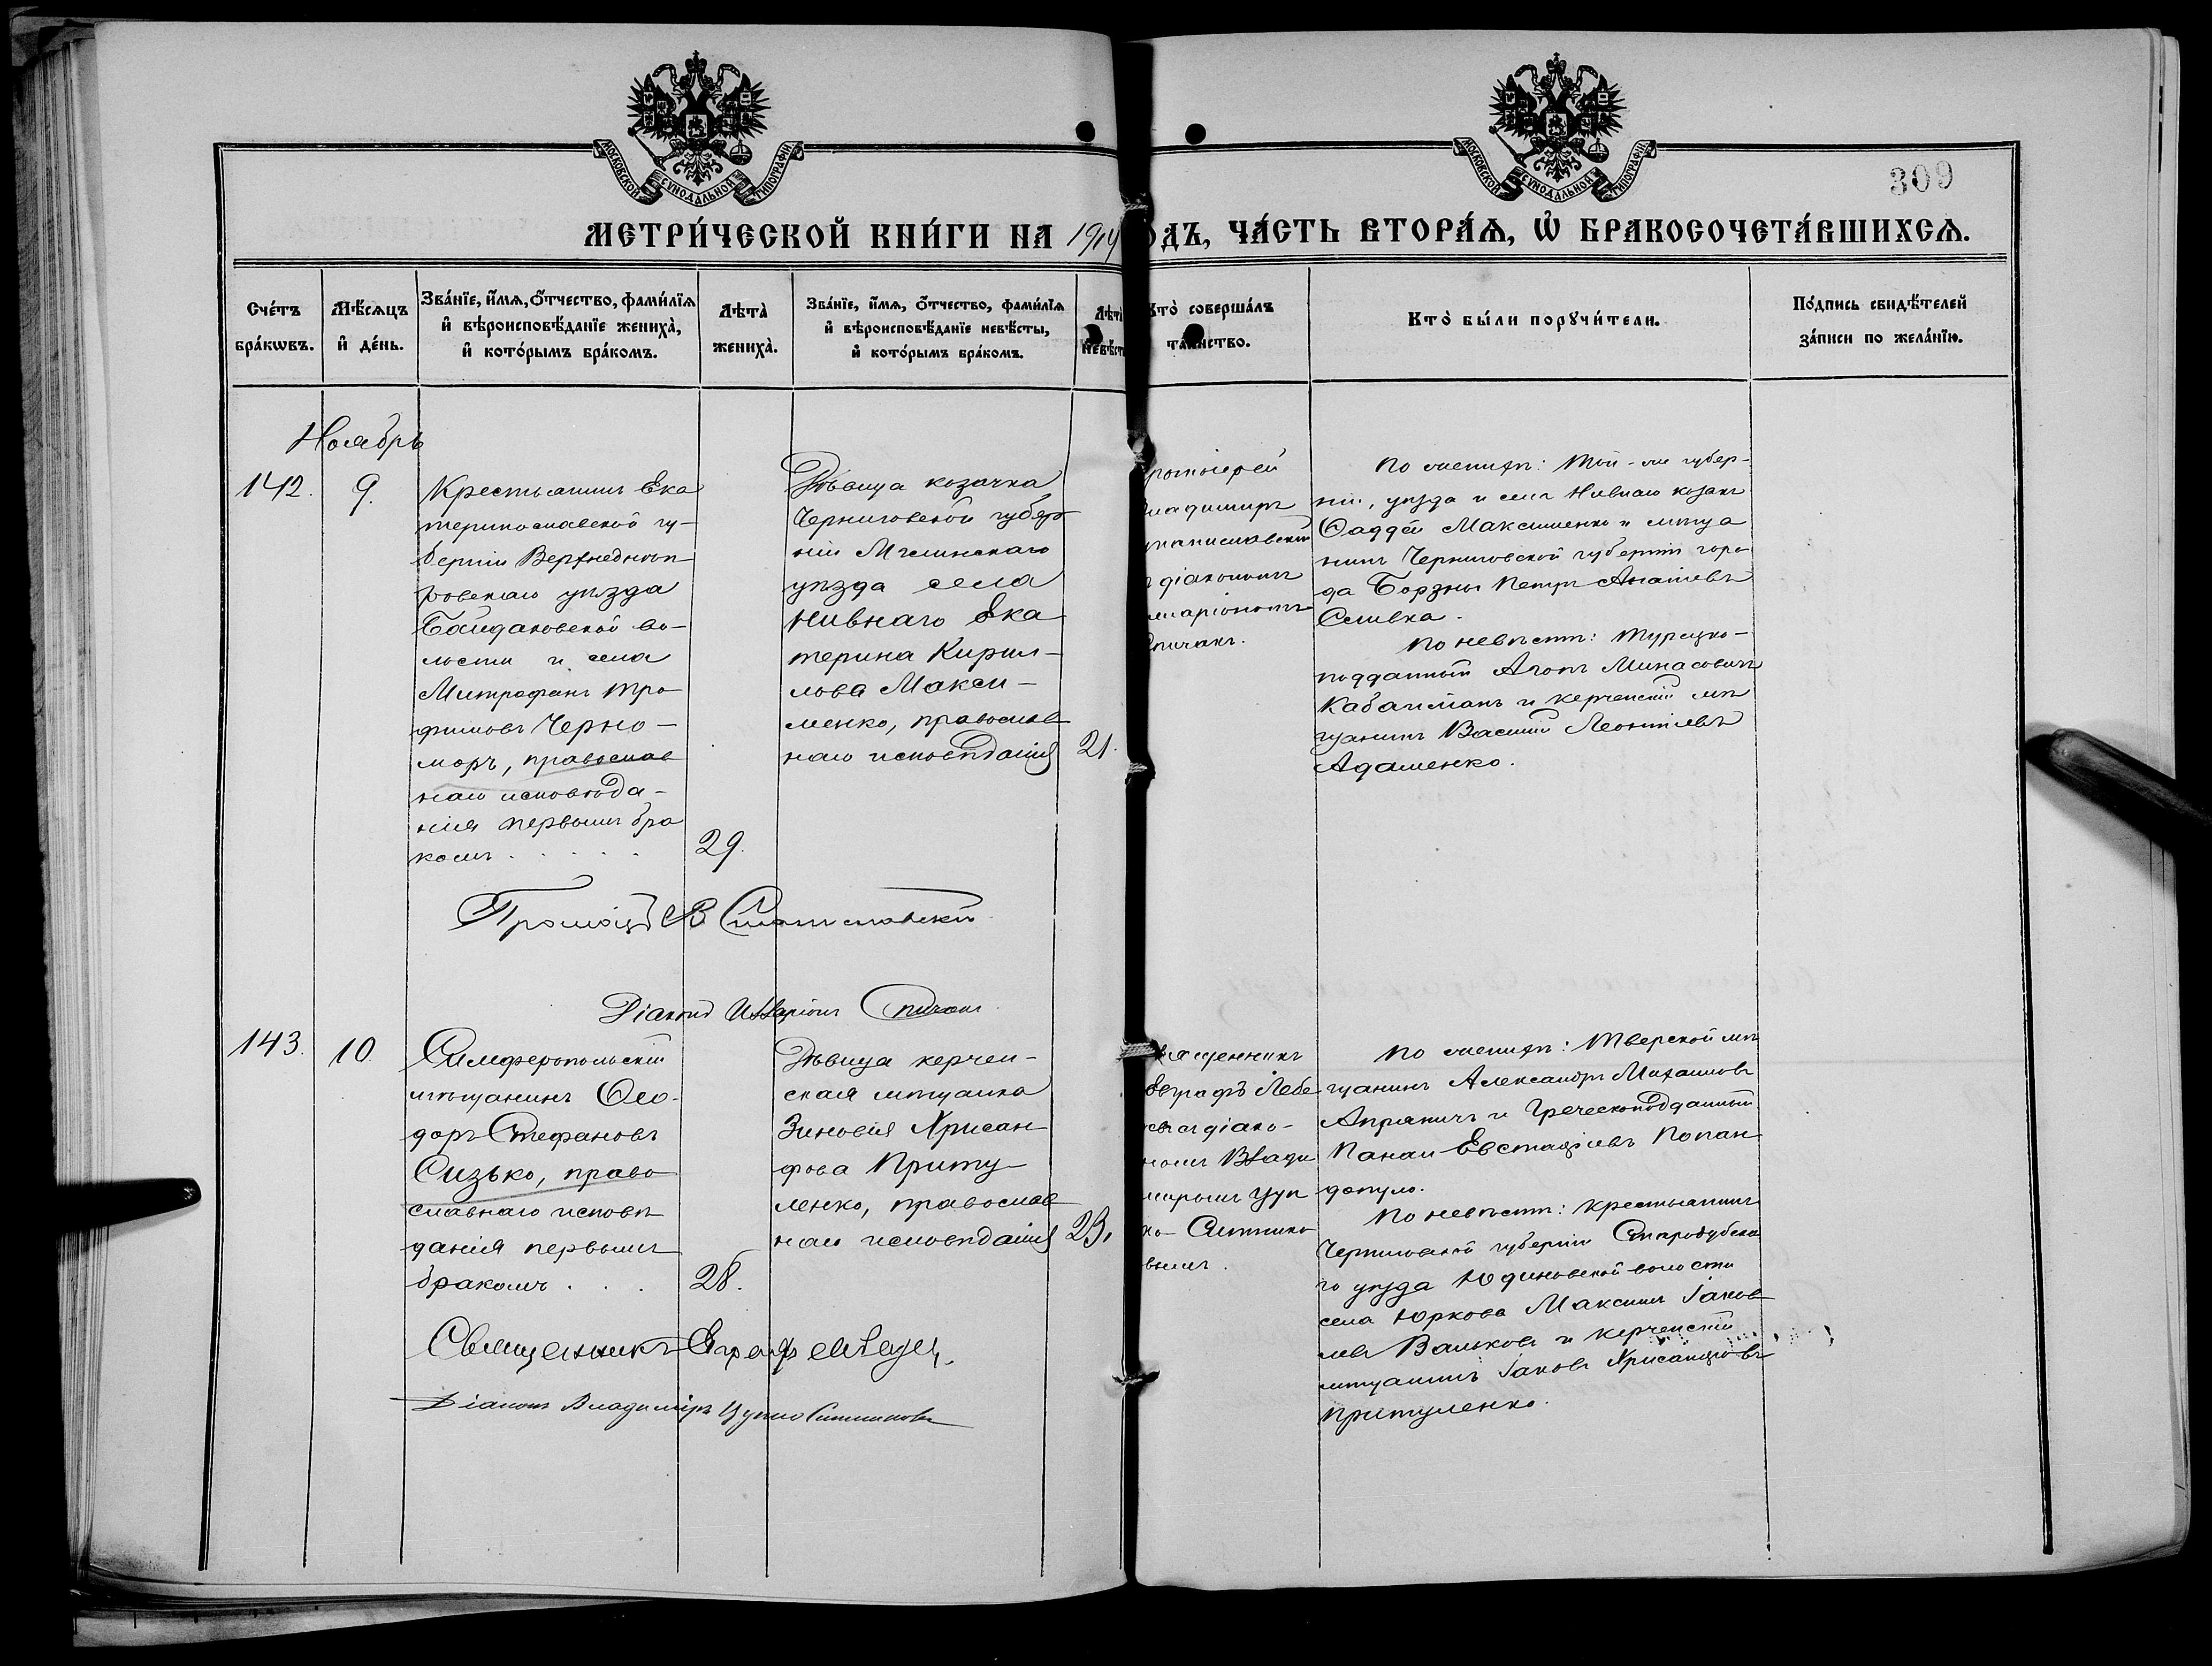 МОСКОВСКОЙ СѴНОДАЛЬНОЙ ТИПОГРАФІИ
МОСКОВСКОЙ СѴНОДАЛЬНОЙ ТИПОГРАФІИ
309
МЕТРИ́ЧЕСКОЙ КНИ́ГИ НА 1914
ОДЪ, ЧА́СТЬ ВТОРА́Ѧ, Ѽ БРАКОСОЧЕТА́ВШИХСѦ.
Сче́тъ
бра́кѡвъ.
Мѣ́сѧцъ
и҆ де́нь.
Зва́нїе, и҆́мѧ, ѻ҆́тчество, фами́лїѧ
и҆ вѣроисповѣ́данїе жениха̀,
и҆ кото́рымъ бра́комъ.
Лѣта̀
жениха̀.
Зва́нїе, и҆́мѧ, ѻ҆́тчество, фами́лїѧ
и҆ вѣроисповѣ́данїе невѣ́сты,
и҆ кото́рымъ бра́комъ.
Лѣт
невѣст
Кто̀ соверша́лъ
таинство.
Кто̀ бы́ли порꙋчи́тели.
По́дпись свидѣ́телей
за́писи по жела́нїю.
Ноябрь
142.
9.
Крестьянинъ Ека
теринославской гу-
берніи Верхнеднѣп
ровскаго уѣзда
во-
лости и села
Митрофанъ Тро
фимовъ Черно-
моръ, православ
наго исповѣда-
нія первымъ бра
комъ . . . . .
29.
Дѣвица козачка
Черниговской губер
ніи Мглинскаго
уѣзда села
Нивнаго Ека
терина Кирил-
лова Макси-
менко, православ
наго исповѣданія
21.
ротоіерей
ладимиръ
таниславскій
діакономъ
ларіономъ
пичакъ.
По женихѣ: Той-же губер-
ніи, уѣзда и села Нивнаго козакъ
Фаддей Максименко и мѣща
нинъ Черниговской губерніи горо
да Борзны Петръ Ананіевъ
Сливка.
По невѣстѣ: Турецко-
подданный Агопъ Минасовичъ
и керченскій мѣ
щанинъ Василій Леонтіевъ
Адаменко.
Протоіер В Станиславскій
Діаконъ Илларіонъ Спичакъ
143.
10.
Симферопольскій
мѣщанинъ Фео-
доръ Стефановъ
Сизько, право
славнаго исповѣ
данія первымъ
бракомъ . . .
28.
Дѣвица керчен-
ская мѣщанка
Зиновія Хрисан
фова Приту-
ленко, православ
наго исповѣданія
23.
вященникъ
Евграфъ Лебе
съ діако-
номъ Влади
миромъ Цуп
ко-Ситнико
вымъ.
По женихѣ: Тверской мѣ
щанинъ Александръ Михаиловъ
и Греческоподданный
Панаи Евстафіевъ Попан
допуло.
По невѣстѣ: крестьянинъ
Черниговской губерніи Стародубска
го уѣзда Юдиновской волости
села Юркова Максимъ Іаков
левъ Вальковъ и керченскій
мѣщанинъ Іаковъ Хрисанфовъ
Притуленко.
Священникъ Евграфъ
Діаконъ Владиміръ Цупко Ситниковъ